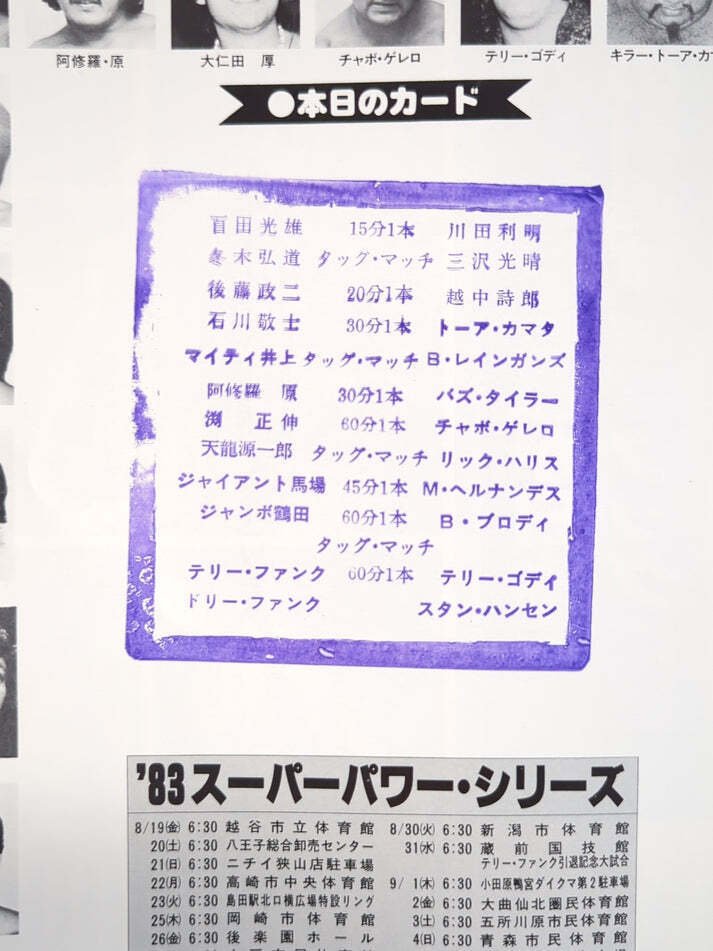 阿修羅・原 大仁田 厚 チャボ・ゲレロ テリー・ゴディ キラー・トーア・カマ
●本日のカード
百田光雄 15分1本 川田利明
冬木弘道 タッグ・マッチ 三沢光晴
後藤政二 20分1本 越中詩郎
石川敬士 30分1本 トーア・カマタ
マイティ井上 タッグ・マッチ B・レインガンズ
阿修羅 原 30分1本 バズ・タイラー
渕 正伸 60分1本 チャボ・ゲレロ
天龍源一郎 タッグ・マッチ リック・ハリス
ジャイアント馬場 45分1本 M・ヘルナンデス
ジャンボ鶴田 60分1本 B・ブロディ
タッグ・マッチ
テリー・ファンク 60分1本 テリー・ゴディ
ドリー・ファンク スタン・ハンセン
'83スーパーパワー・シリーズ
8/19㈮ 6:30 越谷市立体育館
20㈯ 6:30 八王子総合卸売センター
21㈰ 6:30 ニチイ狭山店駐車場
22㈪ 6:30 高崎市中央体育館
23㈫ 6:30 島田駅北口横広場特設リング
25㈭ 6:30 岡崎市体育館
26㈮ 6:30 後楽園ホール
8/30㈫ 6:30 新潟市体育館
31㈬ 6:30 蔵前国技館
テリー・ファンク引退記念大試合
9/1㈭ 6:30 小田原鴨宮ダイクマ第2駐車場
2㈮ 6:30 大曲仙北圏民体育館
3㈯ 6:30 五所川原市民体育館
4㈰ 6:30 青森市民体育館